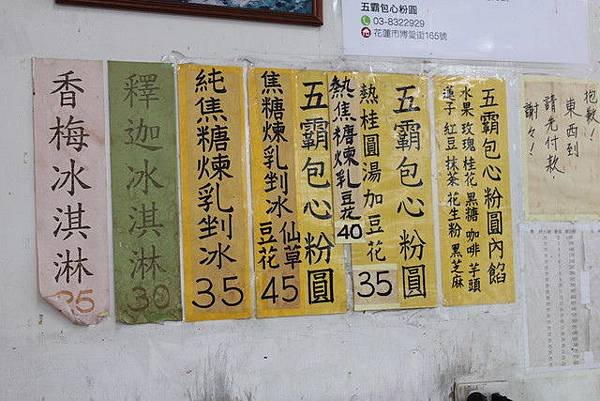 五霸包心粉圓
03-8322929
花蓮市博愛街165號
香梅冰淇淋
35
釋迦冰淇淋
30
純焦糖煉乳剉冰
35
焦糖煉乳剉冰
仙草
豆花
45
五霸包心粉圓
熱焦糖煉乳豆花
40
熱桂圓湯加豆花
35
五霸包心粉圓
五霸包心粉圓內餡
水果 玫瑰 桂花 黑糖 咖啡 芋頭
蓮子 紅豆 抹茶 花生粉 黑芝麻
抱歉!
東西到
請先付款.
謝々!